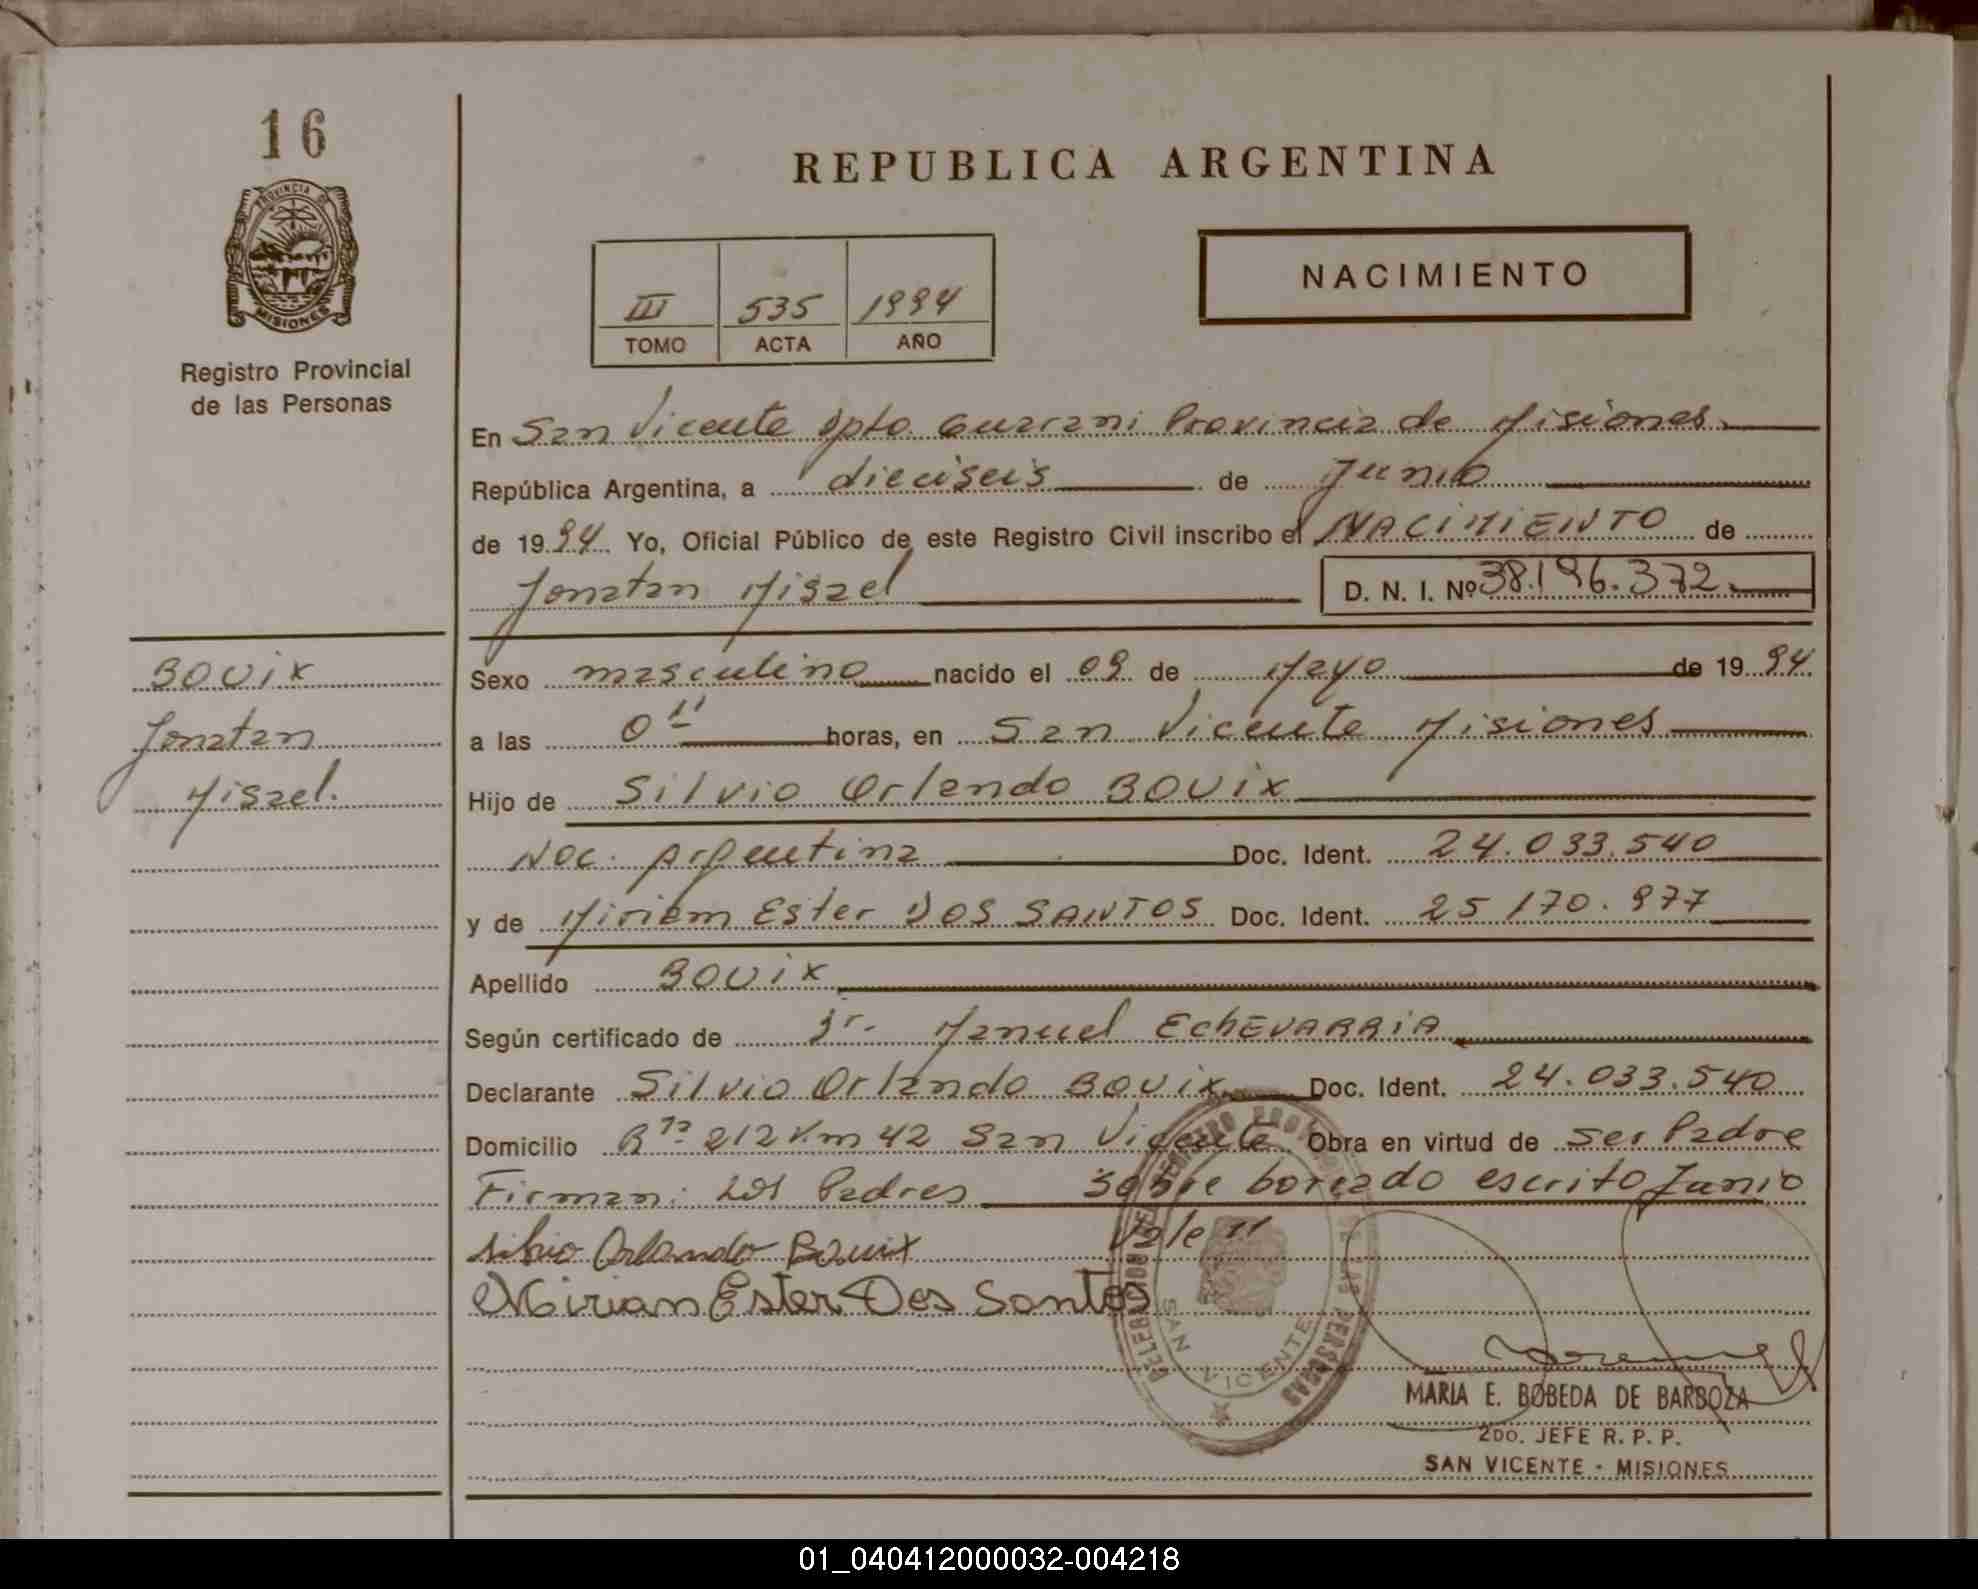 16
PROVINCIA DE
MISIONES
Registro Provincial
de las Personas
REPUBLICA ARGENTINA
III 535 1994
TOMO ACTA AÑO
NACIMIENTO
En San Vicente Dpto. Guarani Provincia de Misiones.
República Argentina, a dieciseis de Junio
de 1994 Yo, Oficial Público de este Registro Civil inscribo el NACIMIENTO de
Jonatan Misael D. N. I. Nº 38.196.372.
BOUIX
Jonatan
Misael.
Sexo masculino nacido el 09 de Mayo de 1994.
a las 0 horas, en San Vicente Misiones
Hijo de Silvio Orlando BOUIX
Nac. Argentina Doc. Ident. 24.033.540
y de Miriam Ester DOS SANTOS Doc. Ident. 25 170.977
Apellido BOUIX
Según certificado de Manuel ECHEVARRIA
Declarante Silvio Orlando BOUIX Doc. Ident. 24.033.540
Domicilio Rta 212 Km 42 San Vicente Obra en virtud de ser Padre
Firman: Los Padres Sobre borrado escrito Junio
Vale "
Silvio Orlando Bouix
Mirian Ester Dos Santos
DELEGACION DEL REGISTRO PROVINCIAL DE LAS PERSONAS
SAN VICENTE
MARIA E. BOBEDA DE BARBOZA
2DO. JEFE R. P. P.
SAN VICENTE - MISIONES
01_040412000032-004218